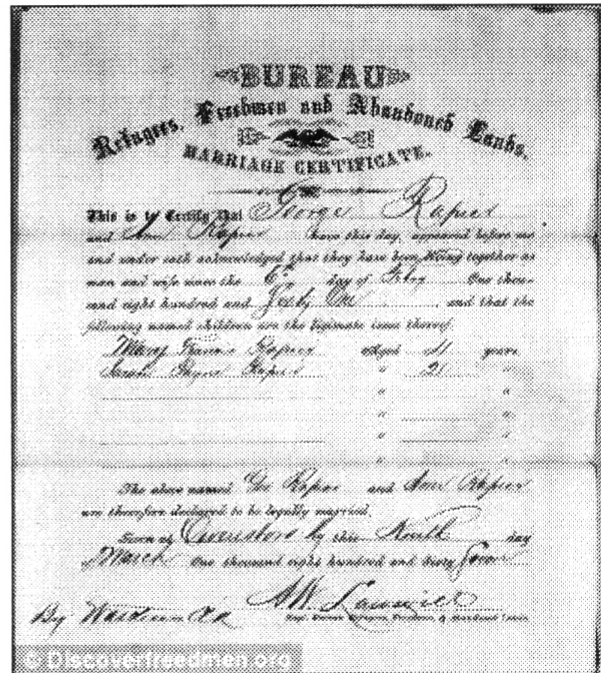 BUREAU
Refugees, Freedmen and Abandoned Lands.
MARRIAGE CERTIFICATE.
This is to Certify that George Rapier
and Ann Rapier have this day, appeared before me
and under oath acknowledged that they have been living together as
man and wife since the 6th day of Feby One thou-
sand eight hundred and Sixty One, and that the
following named children are the legitimate issue thereof.
Mary Rapier Aged years
Rapier " "
" "
" "
" "
" "
The above named Geo Rapier and Ann Rapier
are therefore declared to be legally married.
at this day
of March One thousand eight hundred and Sixty Seven
By
© Discoverfreedmen.org